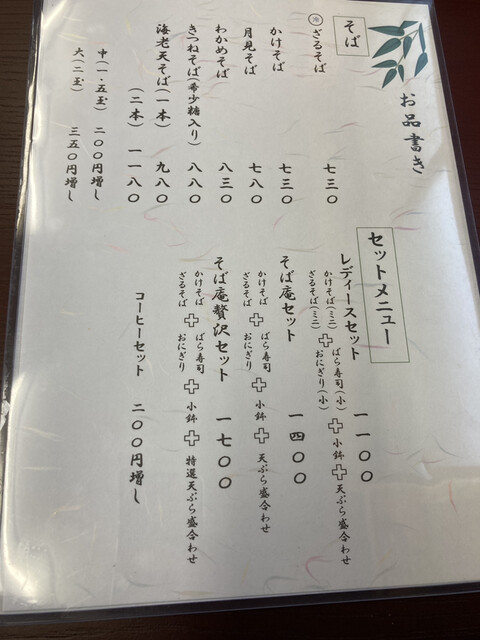 お品書き
そば
冷 ざるそば 七三〇
かけそば 七三〇
月見そば 七八〇
わかめそば 八三〇
きつねそば(希少糖入り) 八八〇
海老天そば(一本) 九八〇
(二本) 一一八〇
中(一・五玉) 二〇〇円増し
大(二玉) 三五〇円増し
セットメニュー
レディースセット 一一〇〇
かけそば(ミニ) ばら寿司(小)
ざるそば(ミニ) + おにぎり(小) + 小鉢 + 天ぷら盛合わせ
そば庵セット 一四〇〇
かけそば ばら寿司
ざるそば + おにぎり + 小鉢 + 天ぷら盛合わせ
そば庵贅沢セット 一七〇〇
かけそば ばら寿司
ざるそば + おにぎり + 小鉢 + 特選天ぷら盛合わせ
コーヒーセット 二〇〇円増し